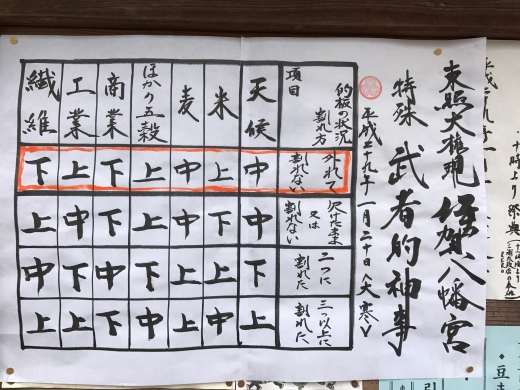 東照大権現 伊賀八幡宮
特殊 武者的神事
平成二十九年一月二十日〈大寒〉
的板の状況
割れ方
項目
外れて
割れない
又は
割れない
二つに
割れた
三つ以上に
割れた
天候 中 中 下 上
米 上 中 下 中
麦 中 下 上 上
ほかり五穀 上 中 下 中
商業 下 上 中 下
工業 上 中 下 上
繊維 下 上 中 上
十時より 祭典